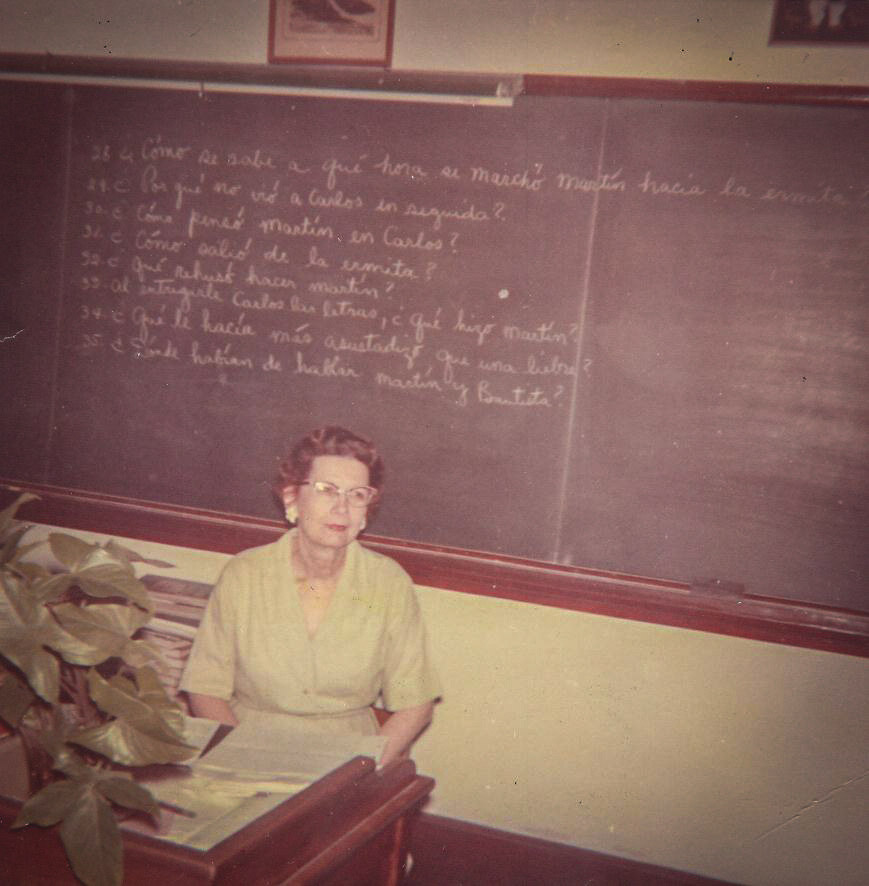 28. ¿ Cómo se sabe a qué hora se marchó Martín hacia la ermita?
29. ¿ Por qué no vió a Carlos en seguida?
30. ¿ Cómo pensó Martín en Carlos?
31. ¿ Cómo salió de la ermita?
32. ¿ Qué rehusó hacer Martín?
33. Al entregirle Carlos las letras, ¿ qué hizo Martín?
34. ¿ Qué le hacía más asustadizo que una liebre?
35. ¿ Dónde habían de hablar Martín y Bautista?